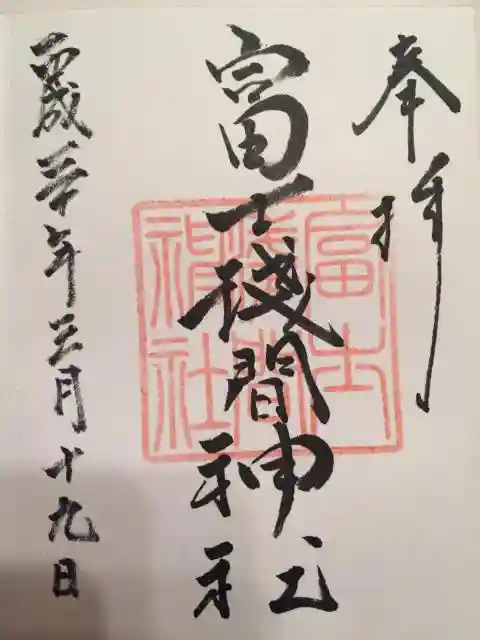 奉拝
富士浅間神社
富士
浅間
神社
平成三十年三月十九日